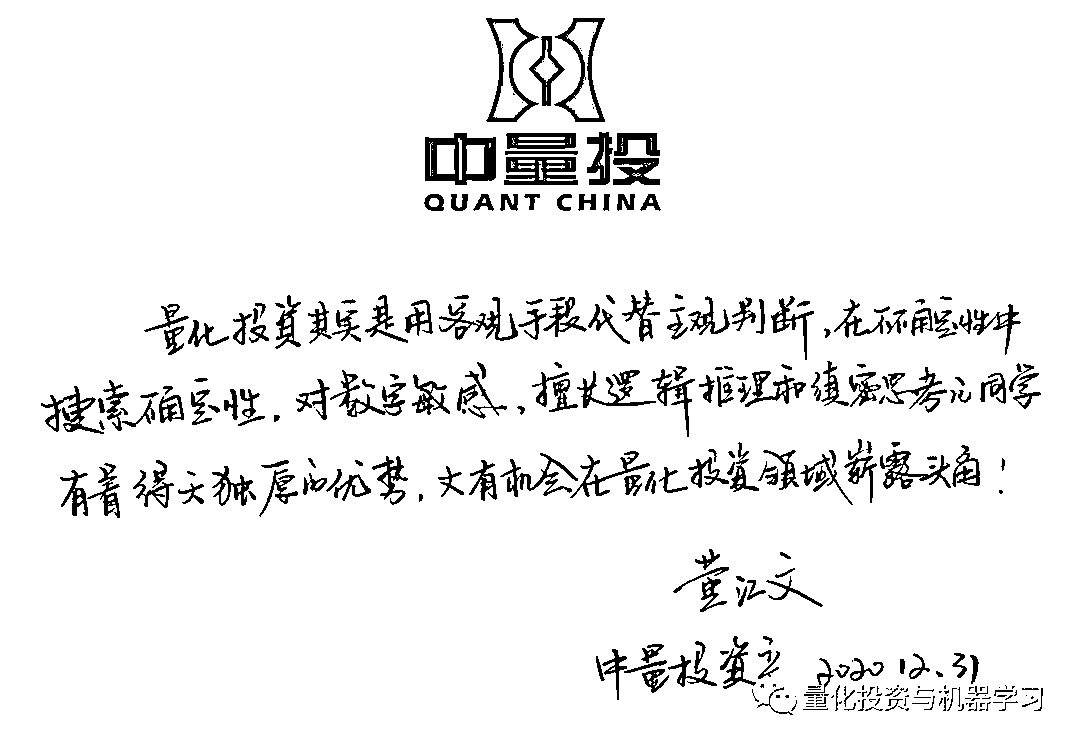 中量投
QUANT CHINA
量化投资其实是用客观手段代替主观判断,在不确定性中
搜索确定性。对数字敏感,擅长逻辑推理和缜密思考的同学
有着得天独厚的优势,大有机会在量化投资领域崭露头角!
黄江文
中量投资产 2020 12.31
量化投资与机器学习